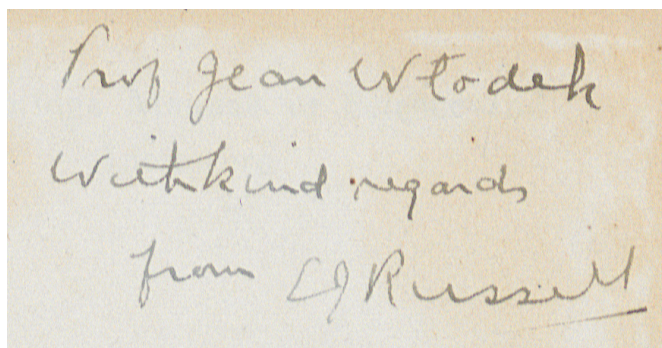 Prof Jean Włodek
With kind regards
from EJ Russell